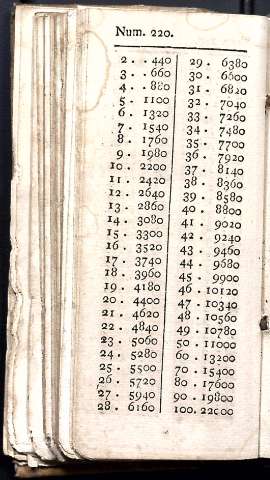 Num. 220.
2 . . 440
3 . . 660
4 . . 880
5 . 1100
6 . 1320
7 . 1540
8 . 1760
9 . 1980
10 . 2200
11 . 2420
12 . 2640
13 . 2860
14 . 3080
15 . 3300
16 . 3520
17 . 3740
18 . 3960
19 . 4180
20 . 4400
21 . 4620
22 . 4840
23 . 5060
24 . 5280
25 . 5500
26 . 5720
27 . 5940
28 . 6160
29 . 6380
30 . 6600
31 . 6820
32 . 7040
33 . 7260
34 . 7480
35 . 7700
36 . 7920
37 . 8140
38 . 8360
39 . 8580
40 . 8800
41 . 9020
42 . 9240
43 . 9460
44 . 9680
45 . 9900
46 . 10120
47 . 10340
48 . 10560
49 . 10780
50 . 11000
60 . 13200
70 . 15400
80 . 17600
90 . 19800
100. 22000